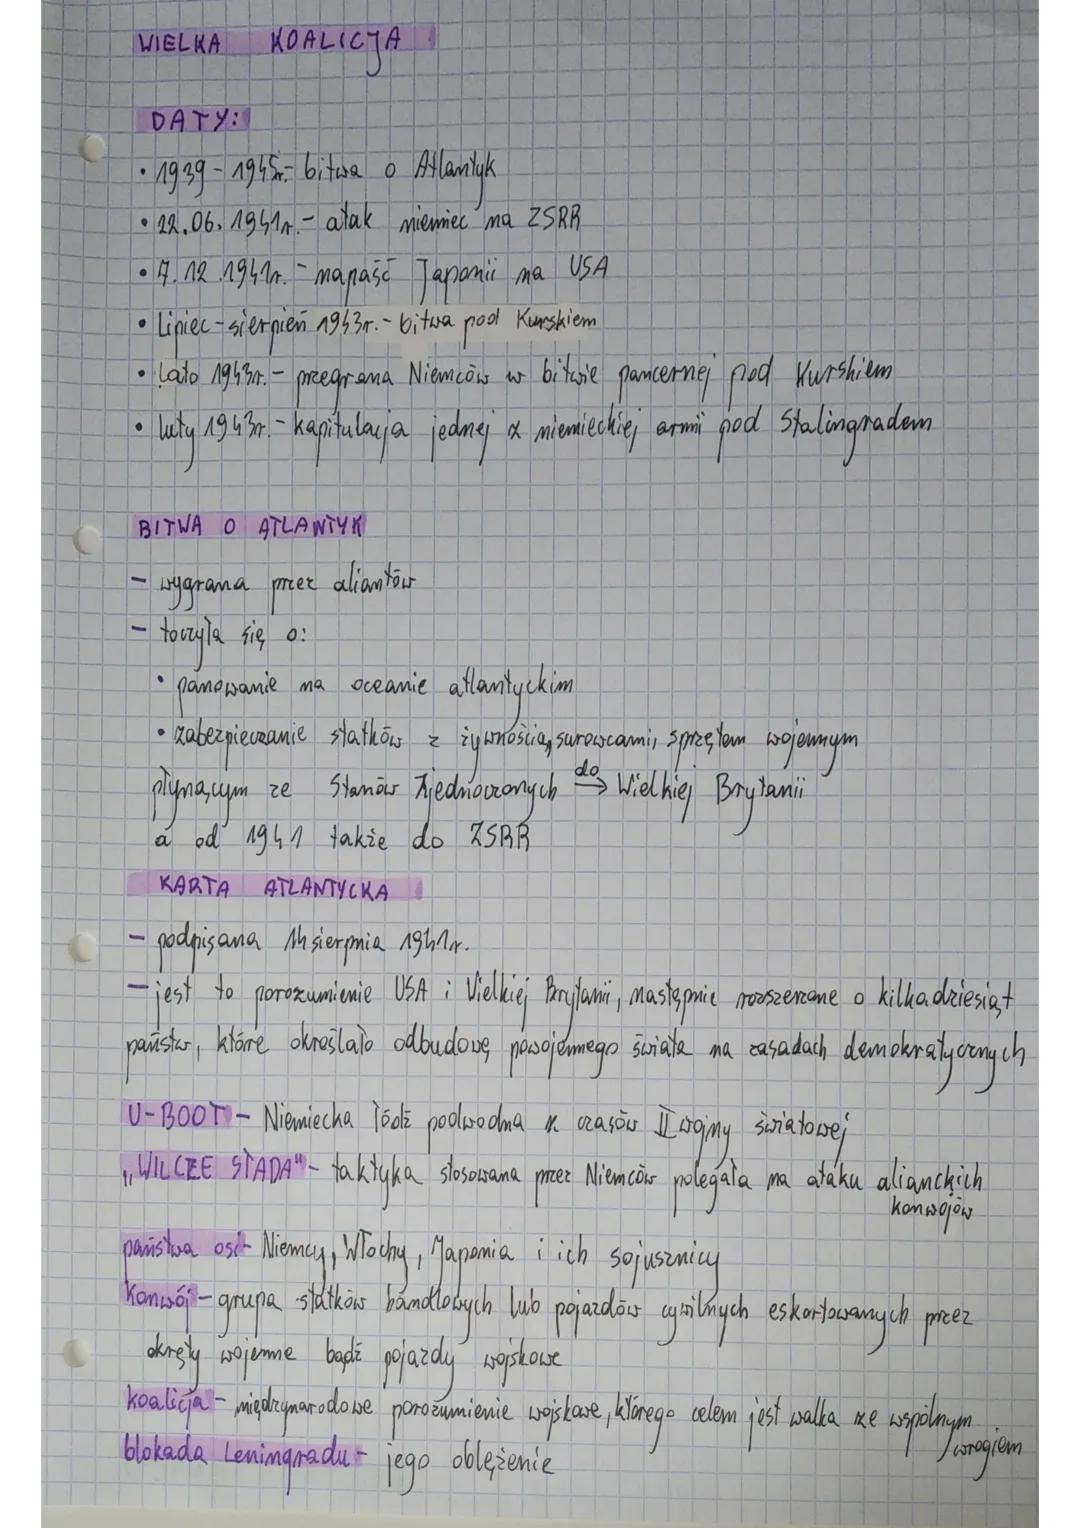 WIELKA KOALICJA
DATY:
• 1939 - 1945r.- bitwa o Atlantyk
• 22.06.1941r.- atak niemiec na ZSRR
• 7.12.1941r. - napaść Japonii na USA
• Lipiec-sierpień 1943r.- bitwa pod Kurskiem
• Lato 1943r.- przegrana Niemców w bitwie pancernej pod Kurskiem
• luty 1943r.- kapitulacja jednej z niemieckiej armi pod Stalingradem
BITWA O ATLANTYK
- wygrana przez aliantów
- toczyła się o:
• panowanie na oceanie atlantyckim
• zabezpieczanie statków z żywnością, surowcami, sprzętem wojennym
płynącym ze Stanów Zjednoczonych do → Wielkiej Brytanii
a od 1941 także do ZSRR
KARTA ATLANTYCKA
- podpisana 14 sierpnia 1941r.
- jest to porozumienie USA i Wielkiej Brytanii, następnie rozszerzone o kilkadziesiąt
państw, które określało odbudowę powojennego świata na zasadach demokratycznych
U-BOOT - Niemiecka łódź podwodna z czasów II wojny światowej
„WILCZE STADA" - taktyka stosowana przez Niemców polegała na ataku alianckich
konwojów
państwa osi - Niemcy, Włochy, Japonia i ich sojusznicy
Konwój - grupa statków handlowych lub pojazdów cywilnych eskortowanych przez
okręty wojenne bądź pojazdy wojskowe
koalicja - międzynarodowe porozumienie wojskowe, którego celem jest walka ze wspólnym
wrogiem
blokada Leningradu - jego oblężenie